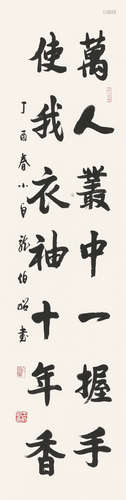 萬人叢中一握手
使我衣袖十年香
丁酉春小身龔伯昭書